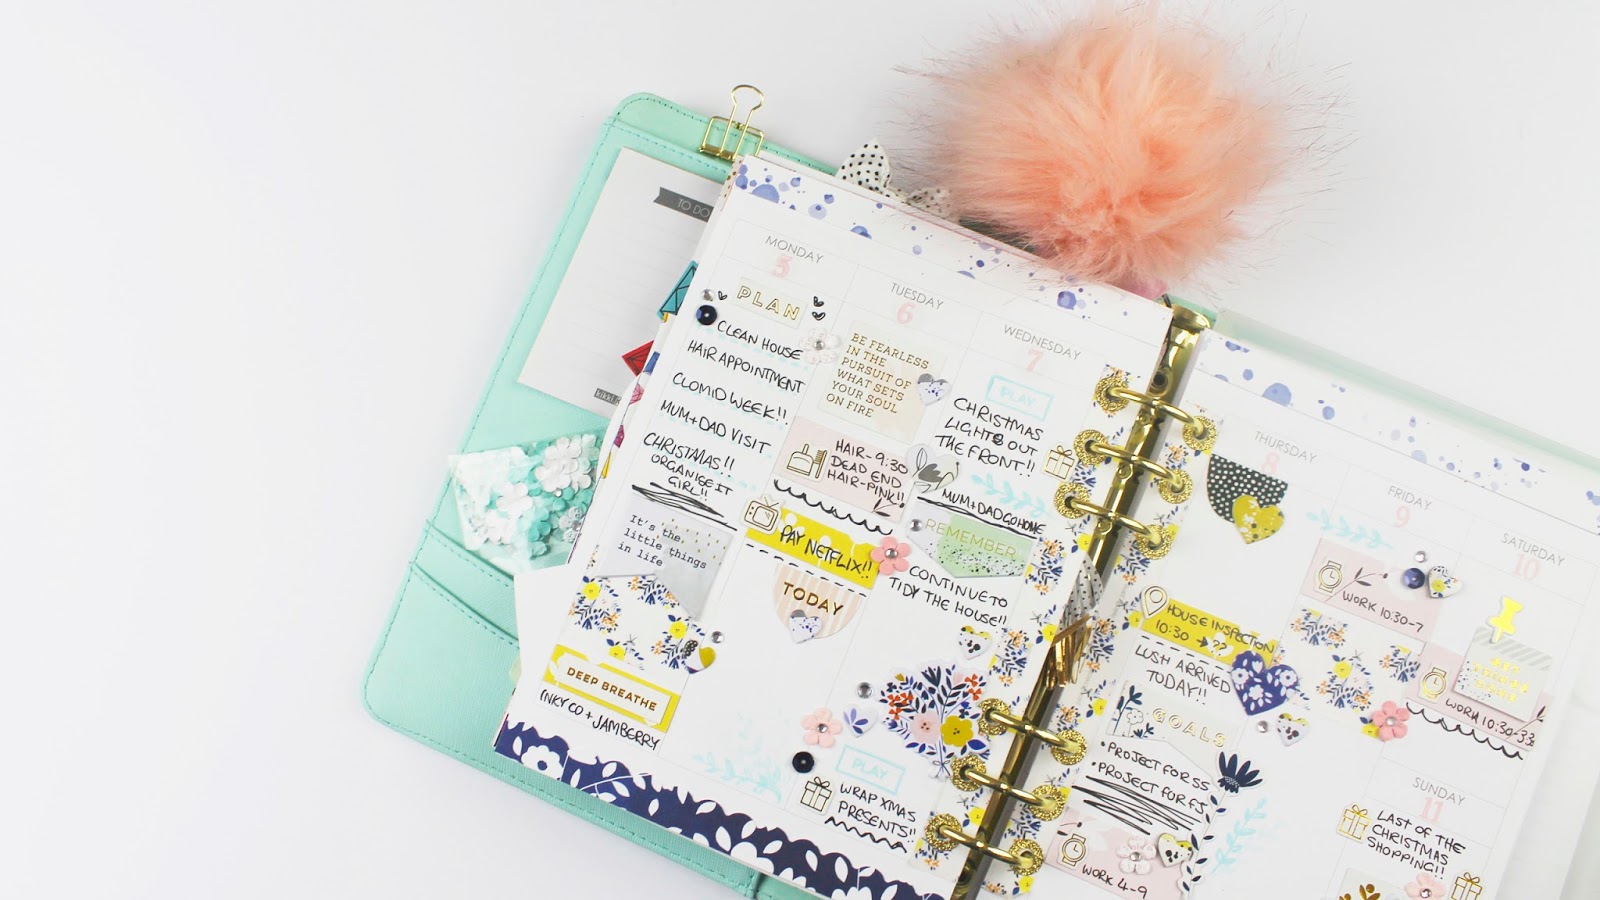 TO DO
kikki.K
MONDAY
5
PLAN
CLEAN HOUSE
HAIR APPOINTMENT
CLOMID WEEK!!
MUM+DAD VISIT
CHRISTMAS!!
ORGANISE IT
GIRL!!
It's the
little things
in life
DEEP BREATHE
INKY CO + JAMBERRY
TUESDAY
6
BE FEARLESS
IN THE
PURSUIT OF
WHAT SETS
YOUR SOUL
ON FIRE
HAIR-9:30
DEAD END
HAIR-PINK!!
PAY NETFLIX!!
TODAY
WEDNESDAY
7
PLAY
CHRISTMAS
LIGHTS OUT
THE FRONT!!
MUM+DAD GO HOME
REMEMBER
CONTINUE TO
TIDY THE HOUSE!!
PLAY
WRAP XMAS
PRESENTS!!
THURSDAY
8
HOUSE INSPECTION
10:30 → ??
LUSH ARRIVED
TODAY!!
GOALS
• PROJECT FOR SS
• PROJECT FOR FS
WORK 4-9
FRIDAY
9
WORK 10:30-7
SATURDAY
10
WORK 10:30-3:30
SUNDAY
11
LAST OF THE
CHRISTMAS
SHOPPING!!